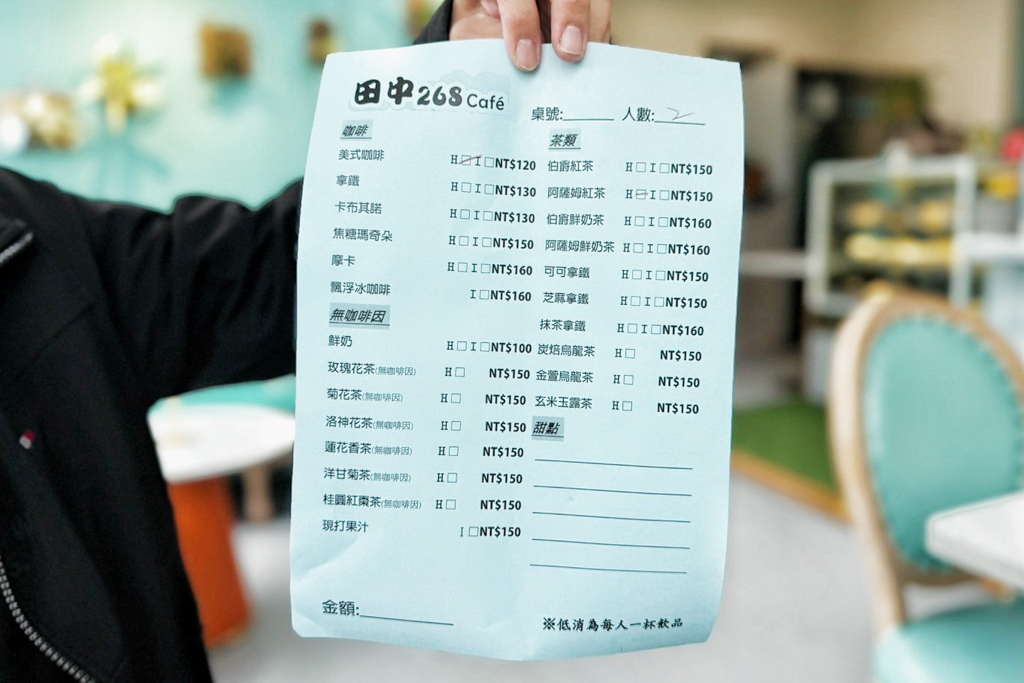 田中268 Café
桌號:______ 人數: 2
咖啡
美式咖啡 H□ I□NT$120
拿鐵 H□ I□NT$130
卡布其諾 H□ I□NT$130
焦糖瑪奇朵 H□ I□NT$150
摩卡 H□ I□NT$160
飄浮冰咖啡 I□NT$160
無咖啡因
鮮奶 H□ I□NT$100
玫瑰花茶(無咖啡因) H□ NT$150
菊花茶(無咖啡因) H□ NT$150
洛神花茶(無咖啡因) H□ NT$150
蓮花香茶(無咖啡因) H□ NT$150
洋甘菊茶(無咖啡因) H□ NT$150
桂圓紅棗茶(無咖啡因) H□ NT$150
現打果汁 I□NT$150
金額:____________
茶類
伯爵紅茶 H□ I□NT$150
阿薩姆紅茶 H□ I□NT$150
伯爵鮮奶茶 H□ I□NT$160
阿薩姆鮮奶茶 H□ I□NT$160
可可拿鐵 H□ I□NT$150
芝麻拿鐵 H□ I□NT$150
抹茶拿鐵 H□ I□NT$160
炭焙烏龍茶 H□ NT$150
金萱烏龍茶 H□ NT$150
玄米玉露茶 H□ NT$150
甜點
※低消為每人一杯飲品